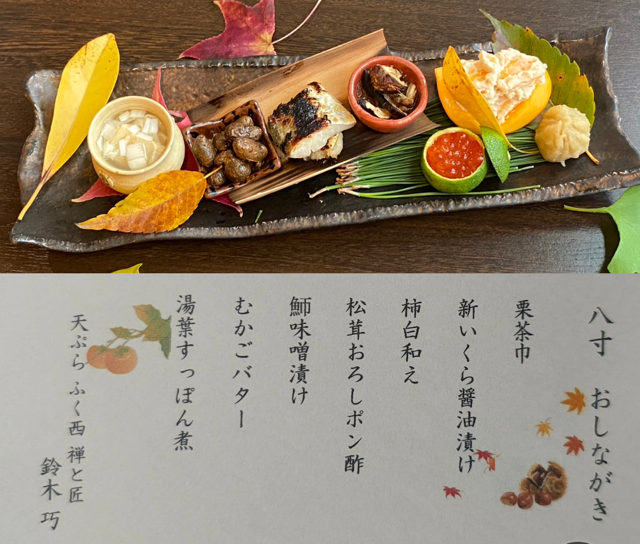 八寸　おしながき
栗茶巾
新いくら醤油漬け
柿白和え
松茸おろしポン酢
鰤味噌漬け
むかごバター
湯葉すっぽん煮
天ぷら ふく西 禅と匠
鈴木 巧